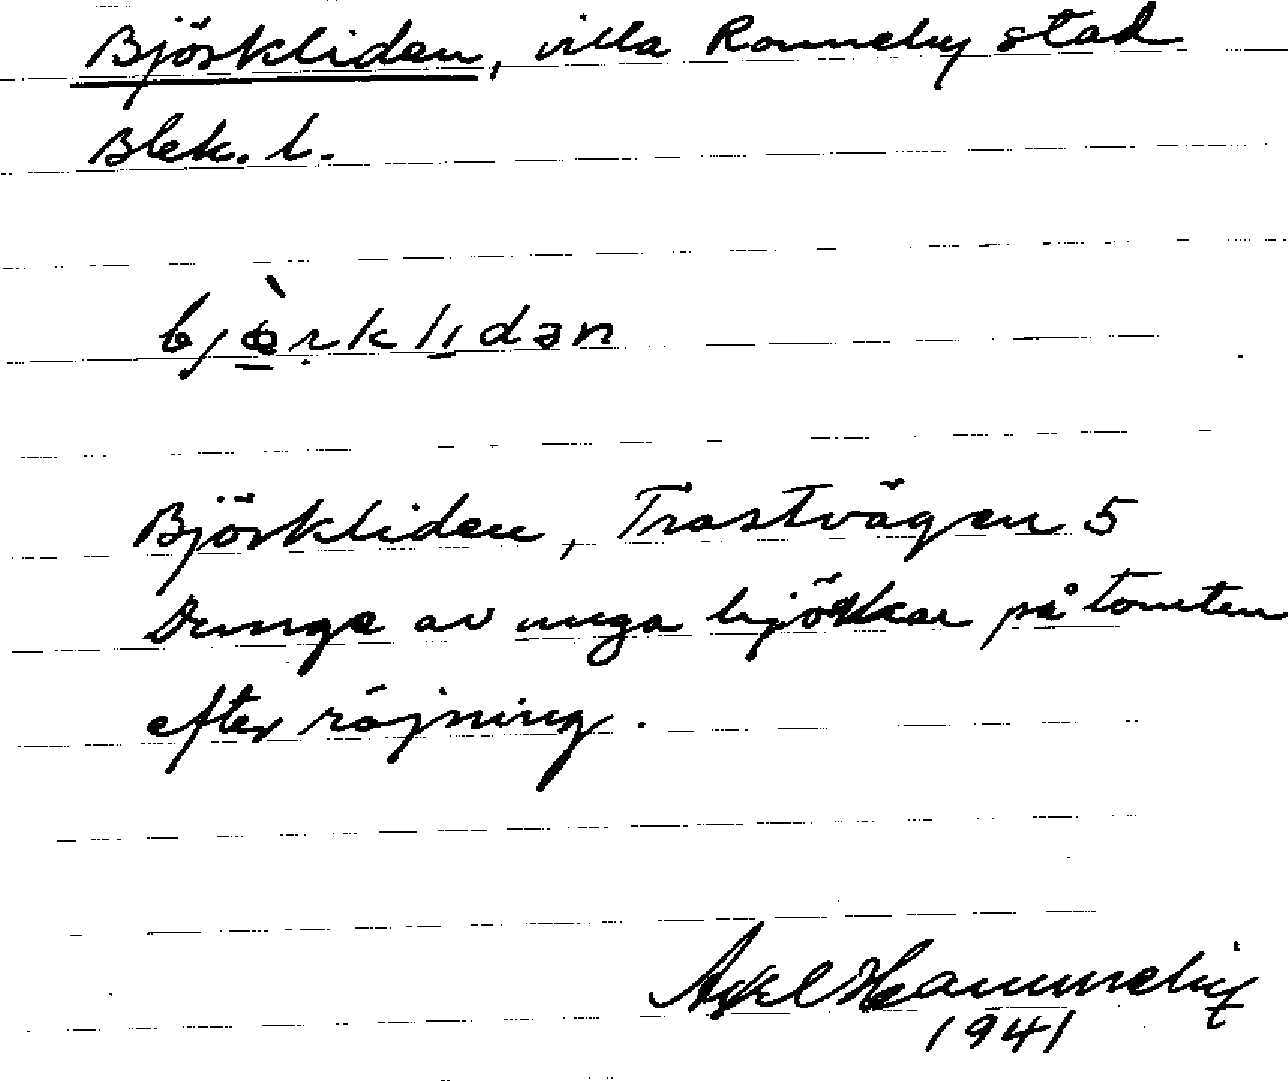 Björkliden, villa Ronneby stad
Blek. l.
bjœ̀rklıdən
Björkliden, Trastvägen 5
Dunge av unga björkar på tomten
efter röjning.
Axel Hammeby
1941